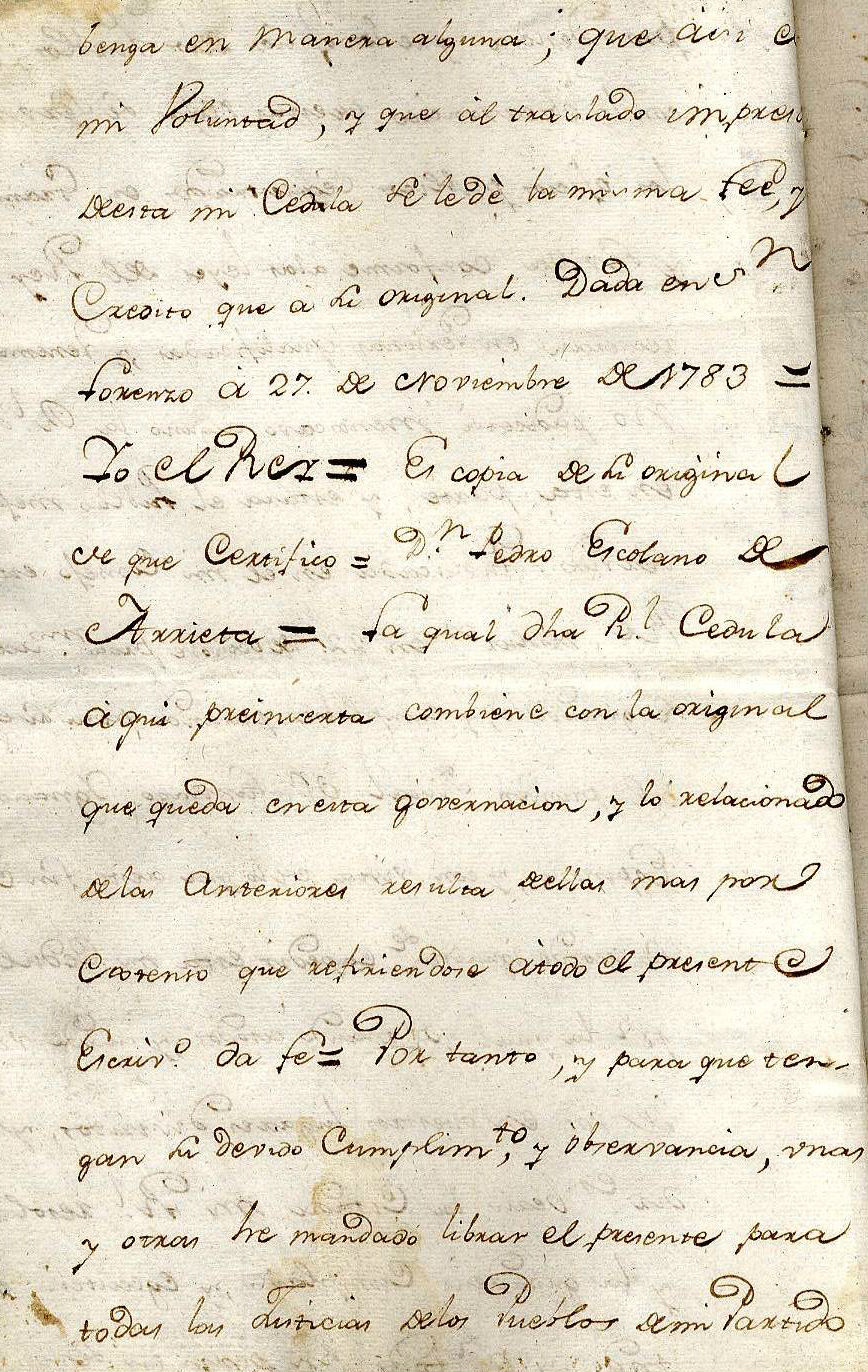 benga en manera alguna; que àsi e
mi Voluntad, y que àl traslado impreso
desta mi Cedula se le dè la misma feè, y
Credito que a su original. Dada en Sn
Lorenzo à 27. de Noviembre de 1783 =
Yo el Rey = Es copia de su original
de que Certifico = D.n Pedro Escolano de
Arrieta = La qual dha R.l Cedula
àqui preinserta combiene con la original
que queda en esta governacion, y lo relacionado
de las Anteriores resulta dellas mas por
Extenso que refiriendose àtodo el presente
Escriv.o da fe = Por tanto, y para que ten-
gan su devido Cumplim.to, y observancia, vnas
y otras he mandado librar el presente para
todas las Justicias delos Pueblos demi Partido